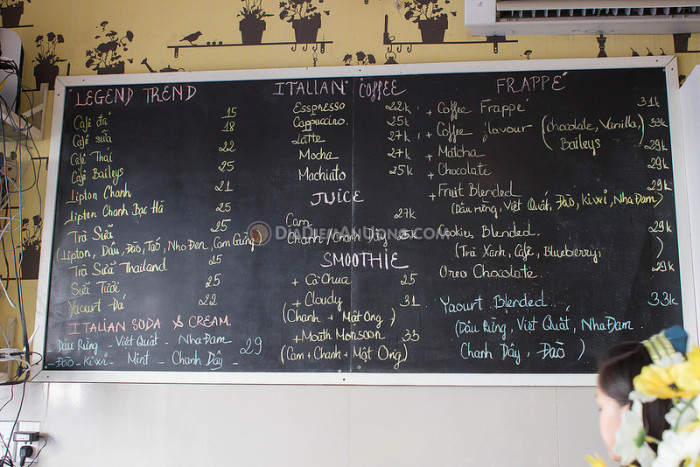 LEGEND TREND
Café đá 15
Café sữa 18
Café Thai 22
Café Baileys 25
Lipton Chanh 21
Lipton Chanh Bạc Hà 25
Trà Sữa 25
Lipton, Dâu, Đào, Táo, Nho Đen, Cam
Trà Sữa Thailand 25
Sữa Tươi 25
Yaourt Đá 22
ITALIAN SODA & CREAM
Dâu Rừng - Việt Quất - Nha Đam
Đào - Kiwi - Mint - Chanh Dây - 29
ITALIAN COFFEE
Esspresso 22k
Cappuccino. 27k
Latte 27k
Mocha 27k
Machiato 25k
JUICE
Cam 27k
Chanh / Chanh Dây 25k
SMOOTHIE
+ Cà Chua 25
+ Cloudy 31
(Chanh + Mật Ong)
+ Mouth Monsoon 35
(Cam + Chanh + Mật Ong)
FRAPPÉ
+ Coffee Frappé 31k
+ Coffee flavour (chocolate, Vanilla) 33k
Baileys
+ Matcha 29k
+ Chocolate 29k
+ Fruit Blended 29k
(Dâu rừng, Việt Quất, Đào, Kiwi, Nha Đam)
Cookies Blended 29k
(Trà Xanh, Cafe, Blueberry)
Oreo Chocolate 29k
Yaourt Blended 33k
(Dâu Rừng, Việt Quất, Nha Đam
Chanh Dây, Đào)
DIADIEMANUONG.COM